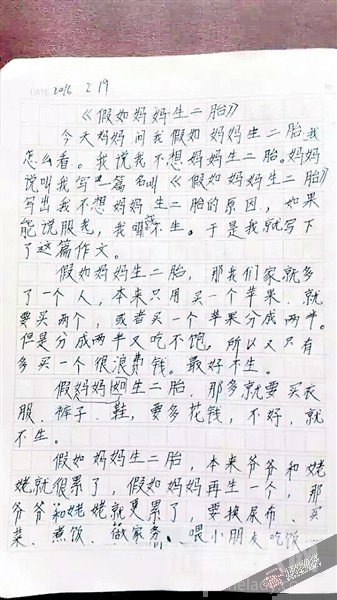 DATE 2016 2 19
《假如妈妈生二胎》
今天妈妈问我假如妈妈生二胎我
怎么看。我说我不想妈妈生二胎。妈妈
说叫我写一篇名叫《假如妈妈生二胎》
写出我不想妈妈生二胎的原因，如果
能说服老，我 不生。于是我就写下
了这篇作文。
假如妈妈生二胎，那我们家就多
了一个人，本来只用买一个苹果，就
要买两个，或者买一个苹果分成两半。
但是分成两半又吃不饱，所以又只有
多买一个很浪费钱。最好不生。
假妈妈 生二胎，那多就要买衣
服、裤子、鞋，要多花钱，不好，就
不生。
假如妈妈生二胎，本来爷爷和姥
姥就很累了，假如妈妈再生一个，那
爷爷和姥姥就更累了，要换尿布、买
菜、煮饭、做家务、喂小朋友吃饭